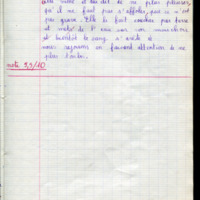 lui vient et lui dit de ne plus pleurer,
qu'il ne faut pas s'affoler, que ce n'est
pas grave. Elle le fait coucher par terre
et met de l'eau sur son mouchoir
et bientôt le sang s'arrête et
nous rejouons en faisant attention de ne
plus tomber.
note 9,5/10